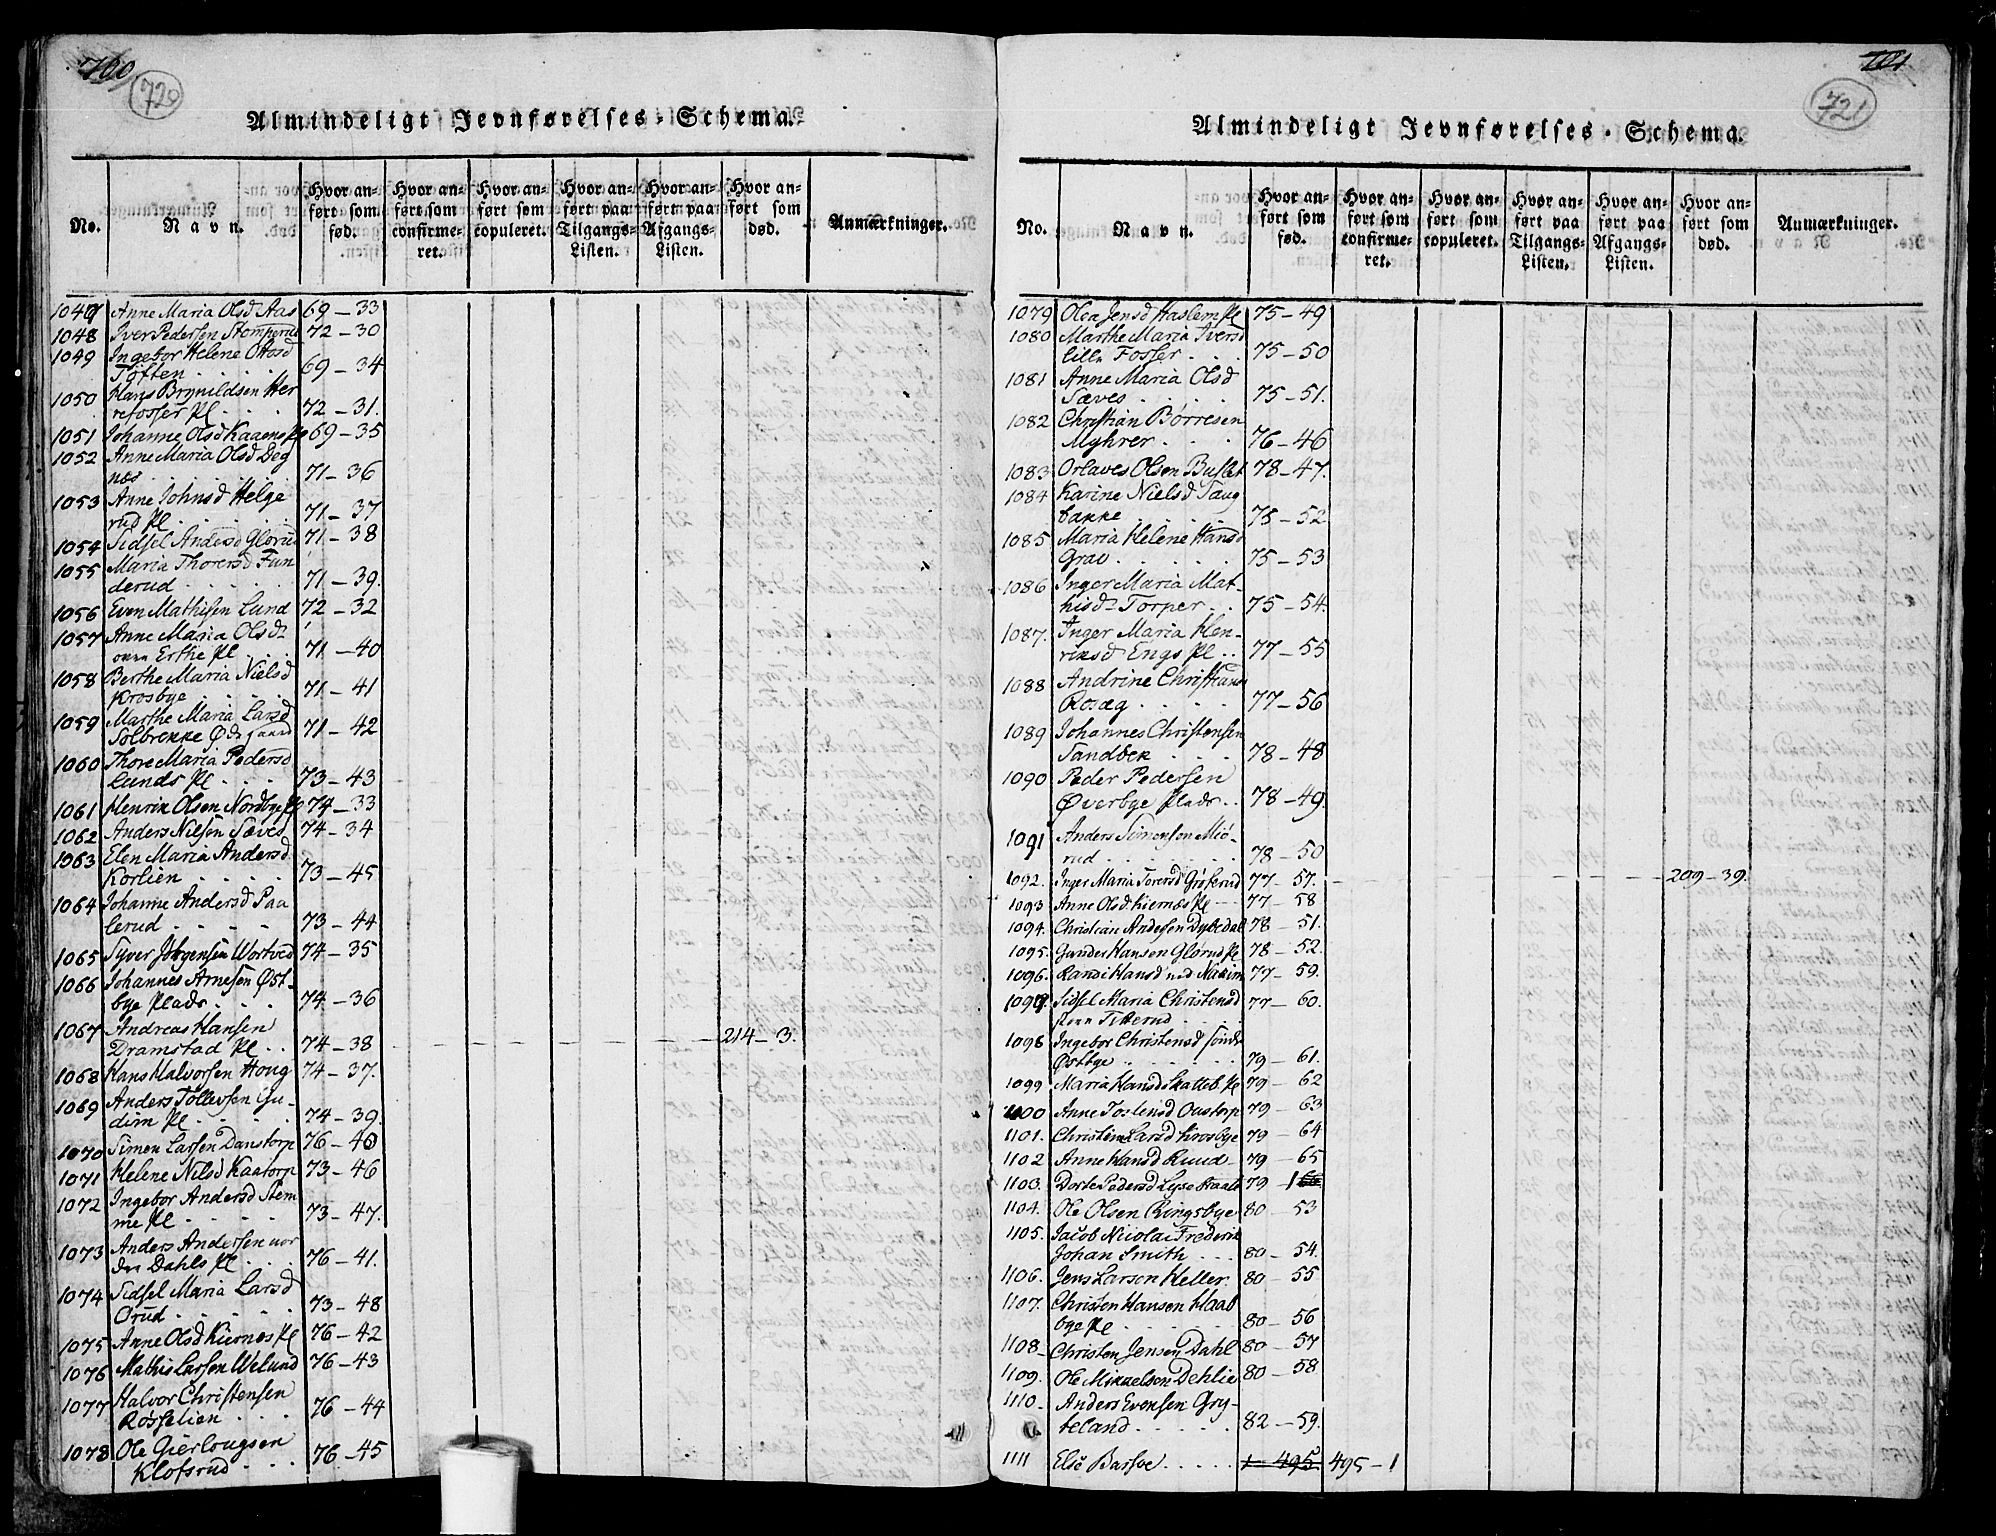 720
Almindeligt Jevnførelses-Schema.
No.
Navn.
Hvor an-
ført som
fød.
Hvor an-
ført som
confirme-
ret.
Hvor an-
ført som
copuleret.
Hvor an-
ført paa
Tilgangs-
Listen.
Hvor an-
ført paa
Afgangs-
Listen.
Hvor an-
ført som
død.
Anmærkninger.
1047 Anne Maria Olsd Aas 69-33
1048 Iver Pedersen Stomperud 72-30
1049 Ingebor Helene Ottosd
Toften . . . . 69-34
1050 Hans Brynildsen Her
refosser Pl . . . 72-31.
1051 Johanne Olsd Kaaens Pl 69-35
1052 Anne Maria Olsd Deg
næs . . . . 71-36
1053 Anne Johnsd Helge
rud Pl . . . . 71-37
1054 Sidsel Andersd Glørud 71-38
1055 Maria Thorersd Fun
derud . . . . 71-39.
1056 Even Mathisen Lund 72-32
1057 Anne Maria Olsd
Erthe Pl . . . 71-40
1058 Berthe Maria Nielsd
Krosbye . . . . 71-41
1059 Marthe Maria Larsd
Solbrekke Ødegaard 71-42
1060 Thore Maria Pedersd
Lunds Pl . . . 73-43
1061 Henrik Olsen Nordbye Pl 74-33
1062 Anders Nilsen Sæves 74-34
1063 Elen Maria Andersd
Korlien . . . . 73-45
1064 Johanne Andersd Paa
lerud . . . . 73-44
1065 Syver Jørgensen Wortved 74-35
1066 Johannes Arnesen Øst-
bye Plads . . . 74-36
1067 Andreas Hansen
Dramstad Pl . . 74-38 214-3.
1068 Hans Halvorsen Houg 74-37.
1069 Anders Tollevsen Gu-
dim Pl . . . . 74-39.
1070 Simen Larsen Danstorp 76-40
1071 Helene Nilsd Kaatorp 73-46
1072 Ingebor Andersd Stem
me Pl . . . . 73-47.
1073 Anders Andersen nor
dre Dahls Pl . . . 76-41.
1074 Sidsel Maria Larsd
Orud . . . . . 73-48
1075 Anne Olsd Kiernæs Pl 76-42
1076 Mathis Larsen Welund 76-43
1077 Halvor Christensen
Røsselien . . . 76-44
1078 Ole Gierlougsen
Klofsrud . . . 76-45
721
Almindeligt Jevnførelses-Schema.
No.
Navn.
Hvor an-
ført som
fød.
Hvor an-
ført som
confirme-
ret.
Hvor an-
ført som
copuleret.
Hvor an-
ført paa
Tilgangs-
Listen.
Hvor an-
ført paa
Afgangs-
Listen.
Hvor an-
ført som
død.
Anmærkninger.
1079 Olea Jensd Haslem Pl 75-49
1080 Marthe Maria Iversd
lille Fosser . . . 75-50
1081 Anne Maria Olsd
Sæves . . . . 75-51.
1082 Christian Børresen
Myhrer . . . 76-46
1083 Orlaves Olsen Buslet 78-47.
1084 Karine Nielsd Taug
bakke . . . . 75-52
1085 Maria Helene Hansd
Grav . . . . . 75-53
1086 Inger Maria Mat-
hisd Torper . . 75-54.
1087. Inger Maria Hen-
riksd Engs Pl . . 77-55
1088 Andrine Christians
Rosæg . . . . 77-56
1089 Johannes Christensen
Sandbek . . . 78-48
1090 Peder Pedersen
Øverbye Plads . . 78-49.
1091 Anders Simensen Miø-
rud . . . . . . 78-50
1092. Inger Maria Torersd Grøserud 77-57. 209-39.
1093 Anne Olsd Kiernæs Pl 77-58
1094. Christian Andersen Dybedal 78-51.
1095. Gunder Hansen Glørud Pl 78-52.
1096. Randi Hansd ned Nakim 77-59.
1097. Sidsel Maria Christensd
Titterud . . . 77-60.
1098 Ingebor Christensd søndr
Østbye . . . . . 79-61.
1099 Maria Hansd Skatteb. Pl 79-62
1100 Anne Tostensd Oustorp 79-63
1101. Christine Larsd Krosbye 79-64
1102 Anne Hansd Ruud - 79-65
1103. Dorte Pedersd Lyse Kaals 79-1
1104. Ole Olsen Ringsbye 80-53
1105. Jacob Nicolai Frederik
Johan Smith . . . 80-54.
1106. Jens Larsen Heller. 80-55
1107. Christen Hansen Haab
bye Pl . . . . . 80-56
1108- Christen Jensen Dahl 80-57
1109. Ole Mikkelsen Dehlie 80-58
1110- Anders Evensen Gry-
teland . . . . . 82-59.
1111 Else Barfve . . . . . 1-495 495-1